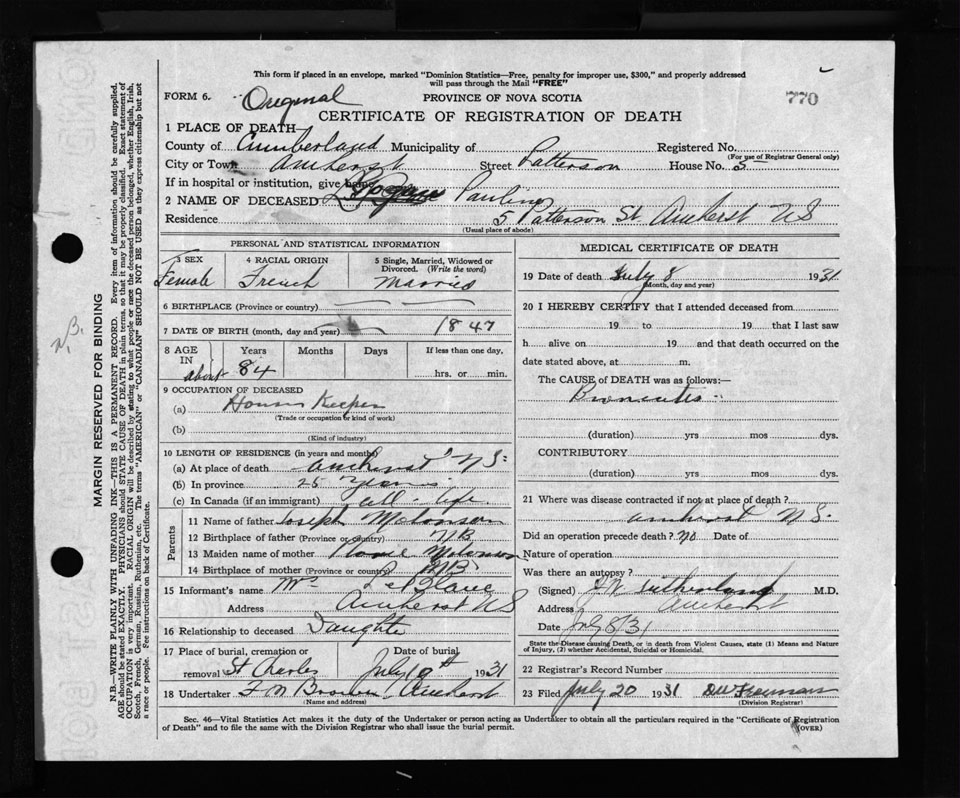 This form if placed in an envelope, marked "Dominion Statistics—Free, penalty for improper use, $300," and properly addressed
will pass through the Mail "FREE"
FORM 6. Original PROVINCE OF NOVA SCOTIA 770
CERTIFICATE OF REGISTRATION OF DEATH
1 PLACE OF DEATH—
County of Cumberland Municipality of Registered No.
(For use of Registrar General only)
City or Town Amherst Street Patterson House No. 5
If in hospital or institution, give name
2 NAME OF DECEASED Pauline
Residence 5 Patterson St. Amherst NS
(Usual place of abode)
PERSONAL AND STATISTICAL INFORMATION
3 SEX 4 RACIAL ORIGIN 5 Single, Married, Widowed or Divorced. (Write the word)
Female French Married
6 BIRTHPLACE (Province or country)
7 DATE OF BIRTH (month, day and year) 1847
8 AGE IN Years Months Days If less than one day.
about 84 hrs. or min.
9 OCCUPATION OF DECEASED
(a) House Keeper
(Trade or occupation or kind of work)
(b)
(Kind of industry)
10 LENGTH OF RESIDENCE (in years and months)
(a) At place of death Amherst NS.
(b) In province 25 Years
(c) In Canada (if an immigrant) all life
Parents
11 Name of father Joseph Melonson
12 Birthplace of father (Province or country) NB
13 Maiden name of mother Melonson
14 Birthplace of mother (Province or country) NB
15 Informant's name Mrs LeBlanc
Address Amherst NS
16 Relationship to deceased Daughter
17 Place of burial, cremation or removal Date of burial
St Charles July 10th 1931
18 Undertaker F M Brown Amherst
(Name and address)
MEDICAL CERTIFICATE OF DEATH
19 Date of death July 8 1931
(Month, day and year)
20 I HEREBY CERTIFY that I attended deceased from
19 to 19 that I last saw
h alive on 19 and that death occurred on the
date stated above, at m.
The CAUSE OF DEATH was as follows:—
(duration) yrs mos dys.
CONTRIBUTORY
(duration) yrs mos dys.
21 Where was disease contracted if not at place of death?
Amherst NS.
Did an operation precede death? No Date of
Nature of operation
Was there an autopsy?
(Signed) Sutherland M.D.
Address Amherst
Date July 8/31
State the Disease causing Death, or in death from Violent Causes, state (1) Means and Nature
of Injury, (2) whether Accidental, Suicidal or Homicidal.
22 Registrar's Record Number
23 Filed July 20 1931 Freeman
(Division Registrar)
Sec. 46—Vital Statistics Act makes it the duty of the Undertaker or person acting as Undertaker to obtain all the particulars required in the "Certificate of Registration
of Death" and to file the same with the Division Registrar who shall issue the burial permit. (OVER)
MARGIN RESERVED FOR BINDING
N.B.—WRITE PLAINLY WITH UNFADING INK—THIS IS A PERMANENT RECORD. Every item of information should be carefully supplied.
AGE should be stated EXACTLY. PHYSICIANS should STATE CAUSE OF DEATH in plain terms, so that it may be properly classified. Exact statement of
OCCUPATION is very important. RACIAL ORIGIN will be described by stating to what people or race the deceased person belonged, whether English, Irish,
Scotch, French, German, Russian, Ruthenian, etc. The terms "AMERICAN" or "CANADIAN" SHOULD NOT BE USED as they express citizenship but not
a race or people. See instructions on back of Certificate.
N.B.